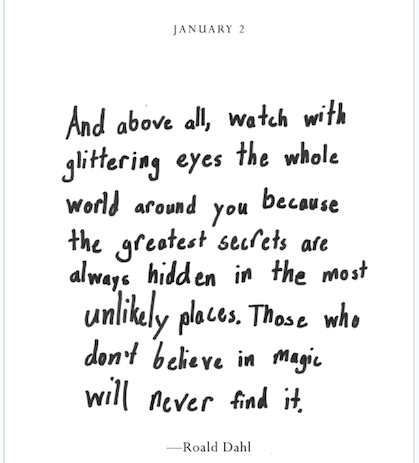 JANUARY 2
And above all, watch with
glittering eyes the whole
world around you because
the greatest secrets are
always hidden in the most
unlikely places. Those who
don't believe in magic
will never find it.
—Roald Dahl